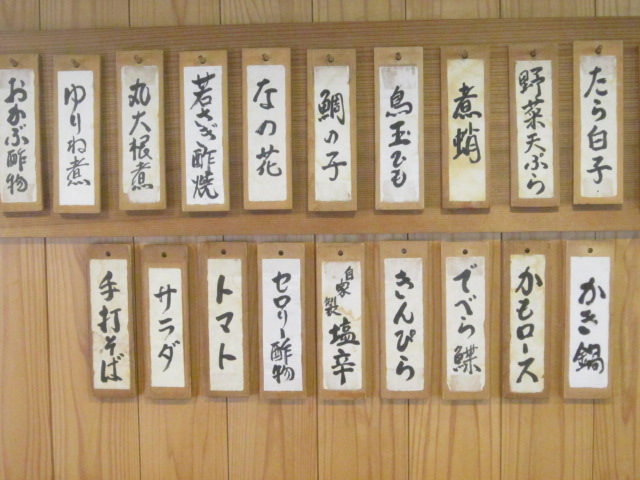 たら白子
野菜天ぷら
煮蛸
鳥玉ひも
鯛の子
なの花
若さぎ酢焼
丸大根煮
ゆりね煮
おかぶ酢物
かき鍋
かもロース
でべら鰈
きんぴら
自家製塩辛
セロリー酢物
トマト
サラダ
手打そば